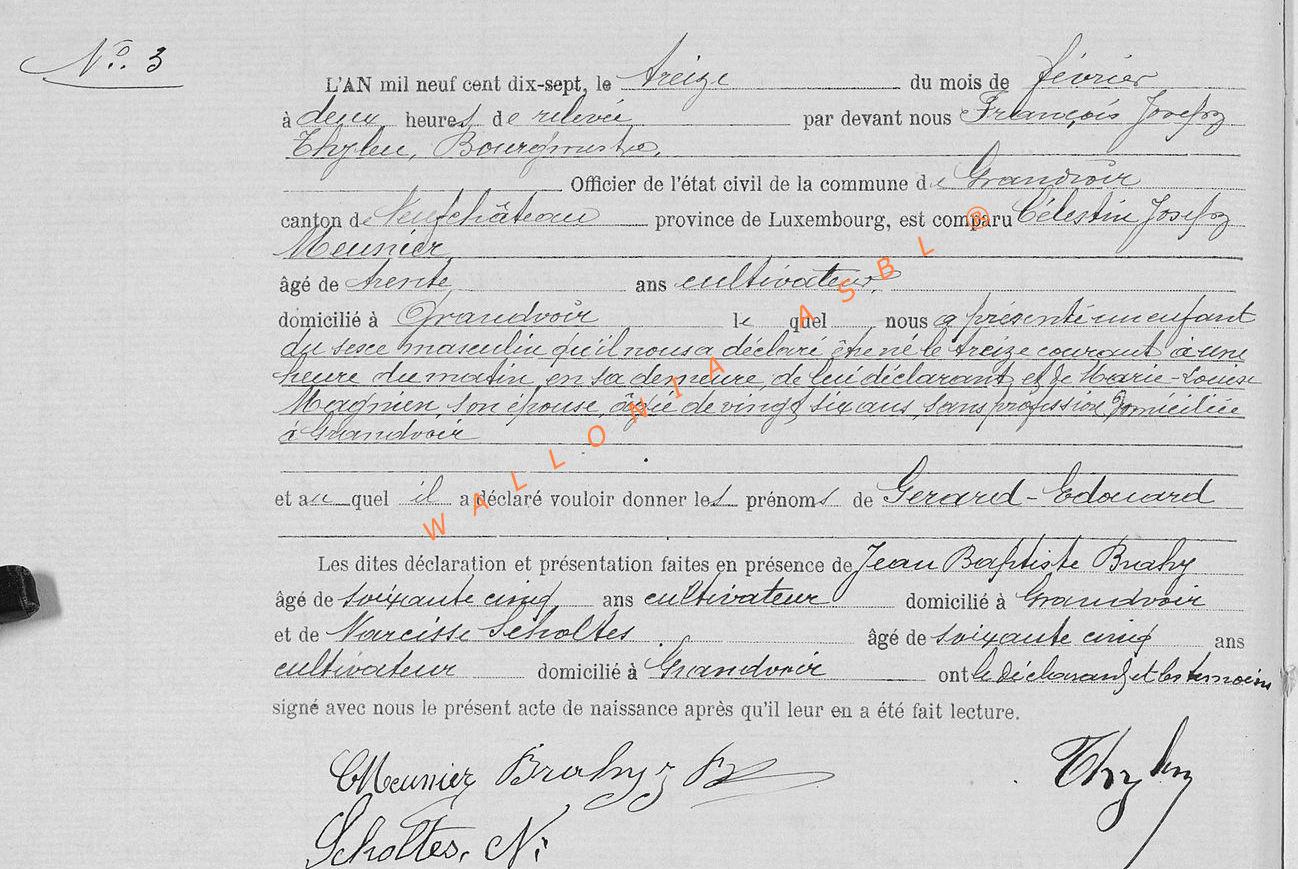 No. 3
L'AN mil neuf cent dix-sept, le treize du mois de février
à deux heures de relevée par devant nous François Joseph
Bourgmestre,
Officier de l'état civil de la commune de Grandvoir
canton de Neufchâteau province de Luxembourg, est comparu Célestin Joseph
Meunier
âgé de trente ans cultivateur,
domicilié à Grandvoir le quel nous a présenté un enfant
du sexe masculin qu'il nous a déclaré être né le treize courant à une
heure du matin, en sa demeure, de lui déclarant et de Marie-Louise
Magnien, son épouse, âgée de vingt six ans, sans profession domiciliée
à Grandvoir
et au quel il a déclaré vouloir donner les prénoms de Gerard-Edouard
Les dites déclaration et présentation faites en présence de Jean Baptiste Brahy
âgé de soixante cinq ans cultivateur domicilié à Grandvoir
et de Narcisse Scholtes âgé de soixante cinq ans
cultivateur domicilié à Grandvoir ont le déclarant et les temoins
signé avec nous le présent acte de naissance après qu'il leur en a été fait lecture.
Meunier Brahy
Scholtes, N.
WALLONIA ASBL ®